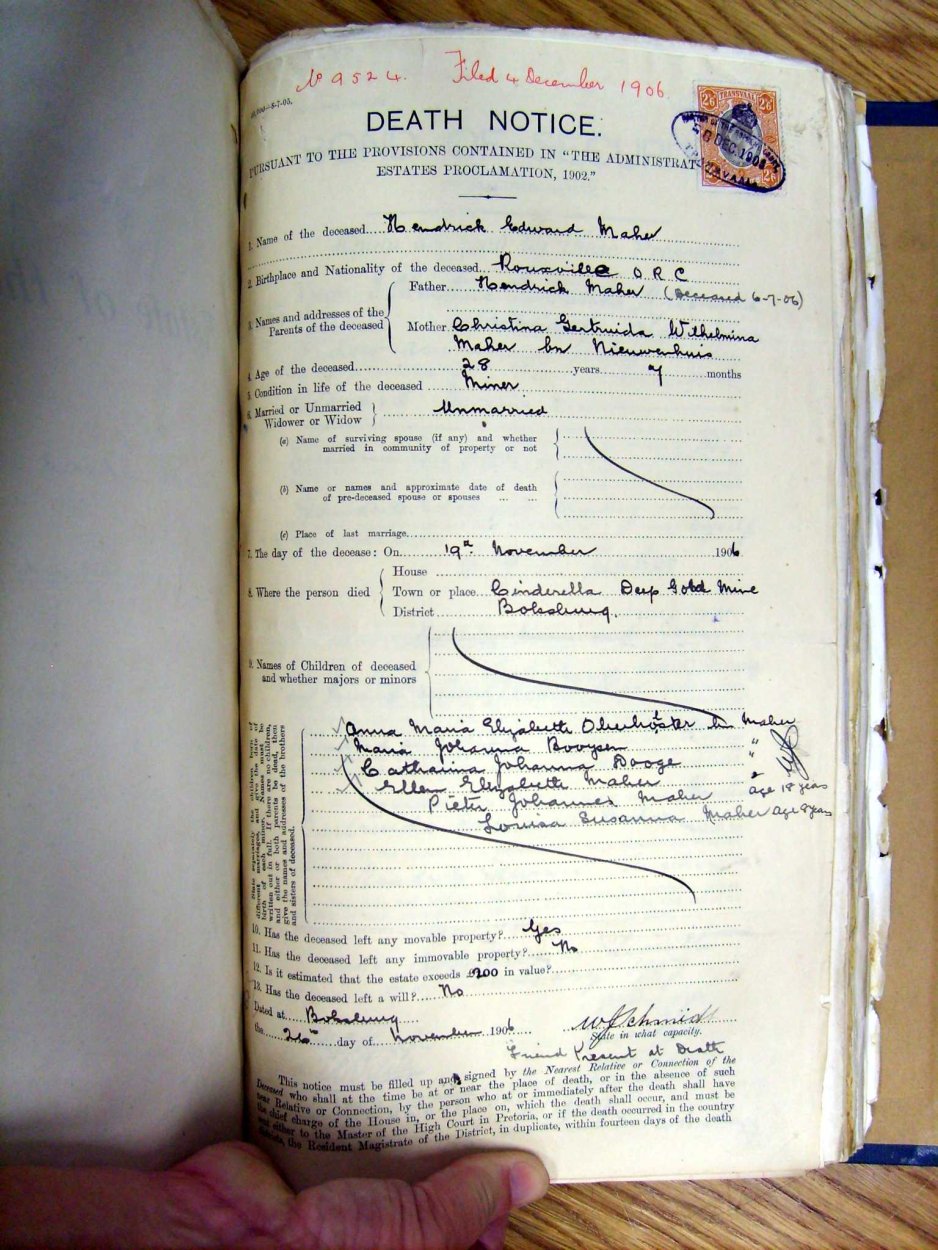 No 9524. Filed 4 December 1906.
40,000—8-7-05.
TRANSVAAL
2/6 2/6
DEC. 1906
2/6
DEATH NOTICE.
PURSUANT TO THE PROVISIONS CONTAINED IN "THE ADMINISTRAT
ESTATES PROCLAMATION, 1902."
1. Name of the deceased Hendrick Edward Maher
2. Birthplace and Nationality of the deceased Rouxville O.R.C
3. Names and addresses of the Parents of the deceased
Father Hendrick Maher (Deceased 6-7-06)
Mother Christina Gertruida Wilhelmina
Maher bn Nieuwenhuis
4. Age of the deceased 28 years 7 months
5. Condition in life of the deceased Miner
6. Married or Unmarried
Widower or Widow Unmarried
(a) Name of surviving spouse (if any) and whether
married in community of property or not
(b) Name or names and approximate date of death
of pre-deceased spouse or spouses ... ...
(c) Place of last marriage
7. The day of the decease: On 19th November 1906
House
8. Where the person died Town or place Cinderella Deep Gold Mine
District Boksburg.
9. Names of Children of deceased
and whether majors or minors
State separately the children born of
different marriages, and give the date of
birth of each minor. Names must be
written out in full. If there are no children,
and either or both parents be dead, then
give the names and addresses of the brothers
and sisters of deceased.
Anna Maria Elizabeth Oberholster bn Maher
Maria Johanna Booysen "
Catharina Johanna Dooge "
Ellen Elizabeth Maher
Pieter Johannes Maher Age 18 years
Louisa Susanna Maher Age 8 years
10. Has the deceased left any movable property? Yes
11. Has the deceased left any immovable property? No
12. Is it estimated that the estate exceeds £200 in value?
13. Has the deceased left a will? No
Dated at Boksburg
the 26th day of November 1906
WJSchmid
State in what capacity.
Friend Present at Death
This notice must be filled up and signed by the Nearest Relative or Connection of the
Deceased who shall at the time be at or near the place of death, or in the absence of such
near Relative or Connection, by the person who at or immediately after the death shall have
the chief charge of the House in, or the place on, which the death shall occur, and must be
sent either to the Master of the High Court in Pretoria, or if the death occurred in the country
the Resident Magistrate of the District, in duplicate, within fourteen days of the death